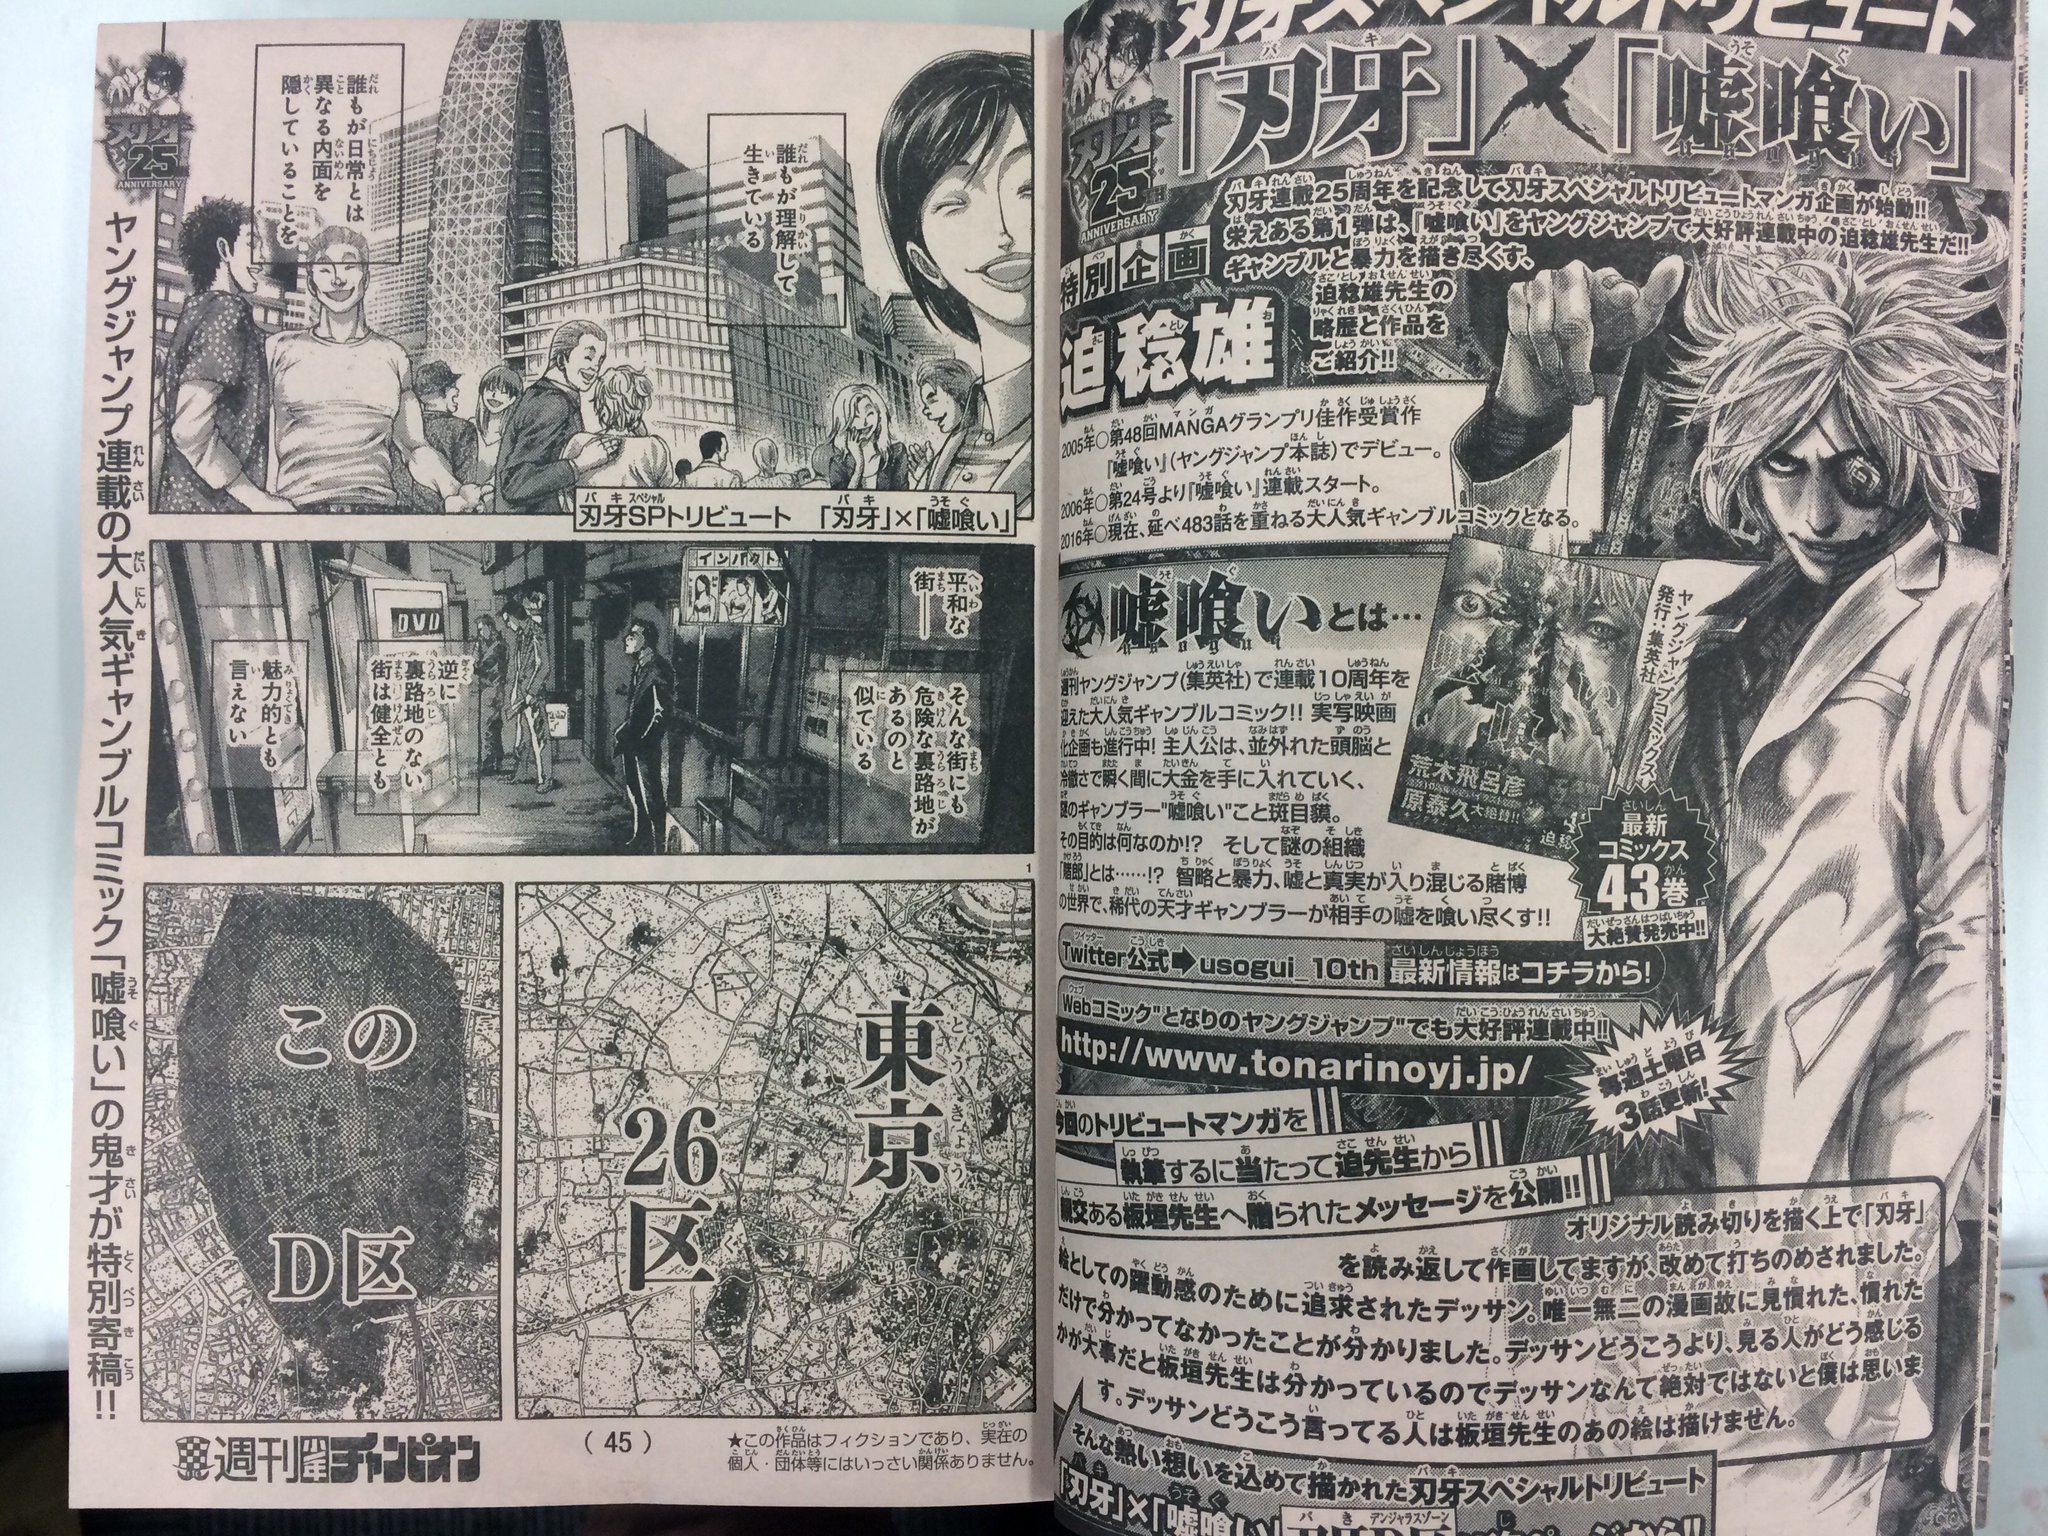 刃牙スペシャルトリビュート
「刃牙」×「嘘喰い」
刃牙
25
ANNIVERSARY
刃牙連載25周年を記念して刃牙スペシャルトリビュートマンガ企画が始動!!
栄えある第1弾は、『嘘喰い』をヤングジャンプで大好評連載中の迫稔雄先生だ!!
ギャンブルと暴力を描き尽くす、
迫稔雄先生の
略歴と作品を
ご紹介!!
特別企画
迫稔雄
2005年○第48回MANGAグランプリ佳作受賞作
『嘘喰い』(ヤングジャンプ本誌)でデビュー。
2006年○第24号より『嘘喰い』連載スタート。
2016年○現在、延べ483話を重ねる大人気ギャンブルコミックとなる。
嘘喰いとは…
usogui
週刊ヤングジャンプ(集英社)で連載10周年を
迎えた大人気ギャンブルコミック!! 実写映画
化企画も進行中! 主人公は、並外れた頭脳と
冷徹さで瞬く間に大金を手に入れていく、
謎のギャンブラー"嘘喰い"こと斑目貘。
その目的は何なのか!? そして謎の組織
「賭郎」とは……!? 智略と暴力、嘘と真実が入り混じる賭博
の世界で、稀代の天才ギャンブラーが相手の嘘を喰い尽くす!!
ヤングジャンプコミックス
発行:集英社
荒木飛呂彦
原泰久大絶賛!!
最新
コミックス
43巻
大絶賛発売中!!
Twitter公式➡usogui_10th 最新情報はコチラから!
Webコミック"となりのヤングジャンプ"でも大好評連載中!!
http://www.tonarinoyj.jp/
毎週土曜日
3話更新!
今回のトリビュートマンガを
執筆するに当たって迫先生から
親交ある板垣先生へ贈られたメッセージを公開!!
オリジナル読み切りを描く上で「刃牙」
を読み返して作画してますが、改めて打ちのめされました。
絵としての躍動感のために追求されたデッサン。唯一無二の漫画故に見慣れた、慣れた
だけで分かってなかったことが分かりました。デッサンどうこうより、見る人がどう感じる
かが大事だと板垣先生は分かっているのでデッサンなんて絶対ではないと僕は思いま
す。デッサンどうこう言ってる人は板垣先生のあの絵は描けません。
そんな熱い想いを込めて描かれた刃牙スペシャルトリビュート
「刃牙」×「嘘喰い」
刃牙
25
ANNIVERSARY
ヤングジャンプ連載の大人気ギャンブルコミック「嘘喰い」の鬼才が特別寄稿!!
誰もが理解して
生きている
誰もが日常とは
異なる内面を
隠していることを
刃牙SPトリビュート 「刃牙」×「嘘喰い」
インパクト
DVD
平和な
街――
そんな街にも
危険な裏路地が
あるのと
似ている
逆に
裏路地のない
街は健全とも
魅力的とも
言えない
1
東京
26区
この
D区
週刊少年チャンピオン
(45)
★この作品はフィクションであり、実在の
個人・団体等にはいっさい関係ありません。